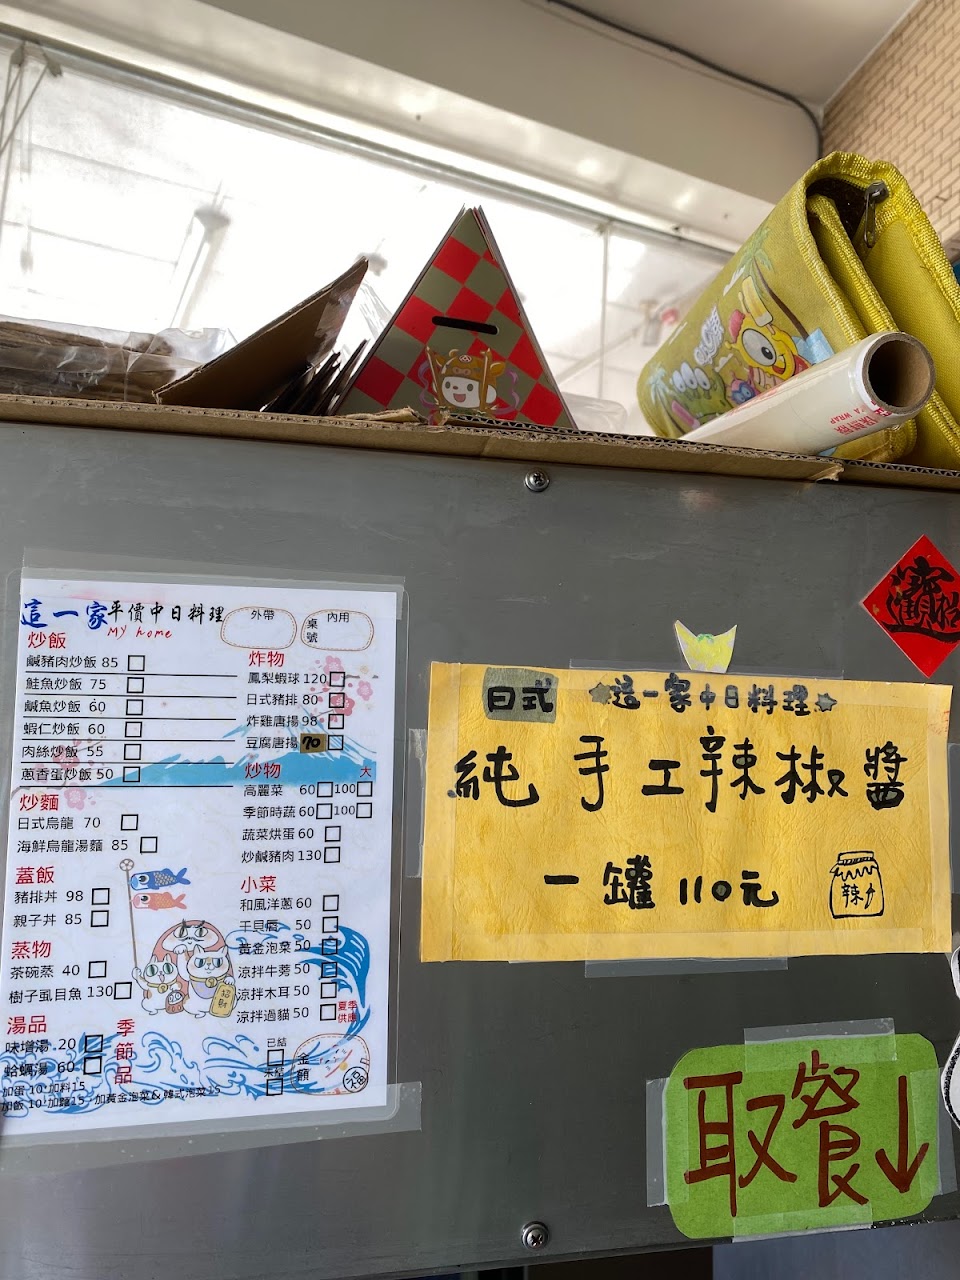 這一家平價中日料理
My home
外帶
內用
桌號
炒飯
鹹豬肉炒飯 85
鮭魚炒飯 75
鹹魚炒飯 60
蝦仁炒飯 60
肉絲炒飯 55
蔥香蛋炒飯 50
炒麵
日式烏龍 70
海鮮烏龍湯麵 85
蓋飯
豬排丼 98
親子丼 85
蒸物
茶碗蒸 40
樹子虱目魚 130
湯品
味增湯 20
蛤蠣湯 60
季節品
加蛋 10 加料15
加飯 10 加麵15 加黃金泡菜 & 韓式泡菜 15
炸物
鳳梨蝦球 120
日式豬排 80
炸雞唐揚 98
豆腐唐揚 70
炒物 大
高麗菜 60 100
季節時蔬 60 100
蔬菜烘蛋 60
炒鹹豬肉 130
小菜
和風洋蔥 60
干貝唇 50
黃金泡菜 50
涼拌牛蒡 50
涼拌木耳 50
涼拌過貓 50 夏季供應
已結
未結
金額
招財
福
日式 這一家中日料理
純手工辣椒醬
一罐 110元
辣
取餐↓
WRAP